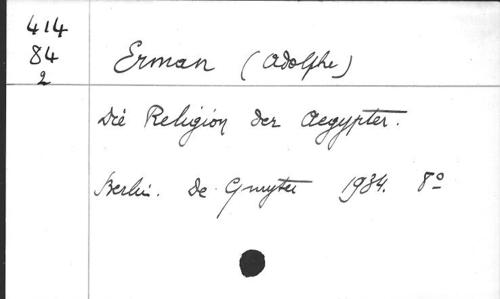 414
84
2
Erman (Adolphe)
Die Religion der Aegypter.
Berlin. de Gruyter 1934. 8°